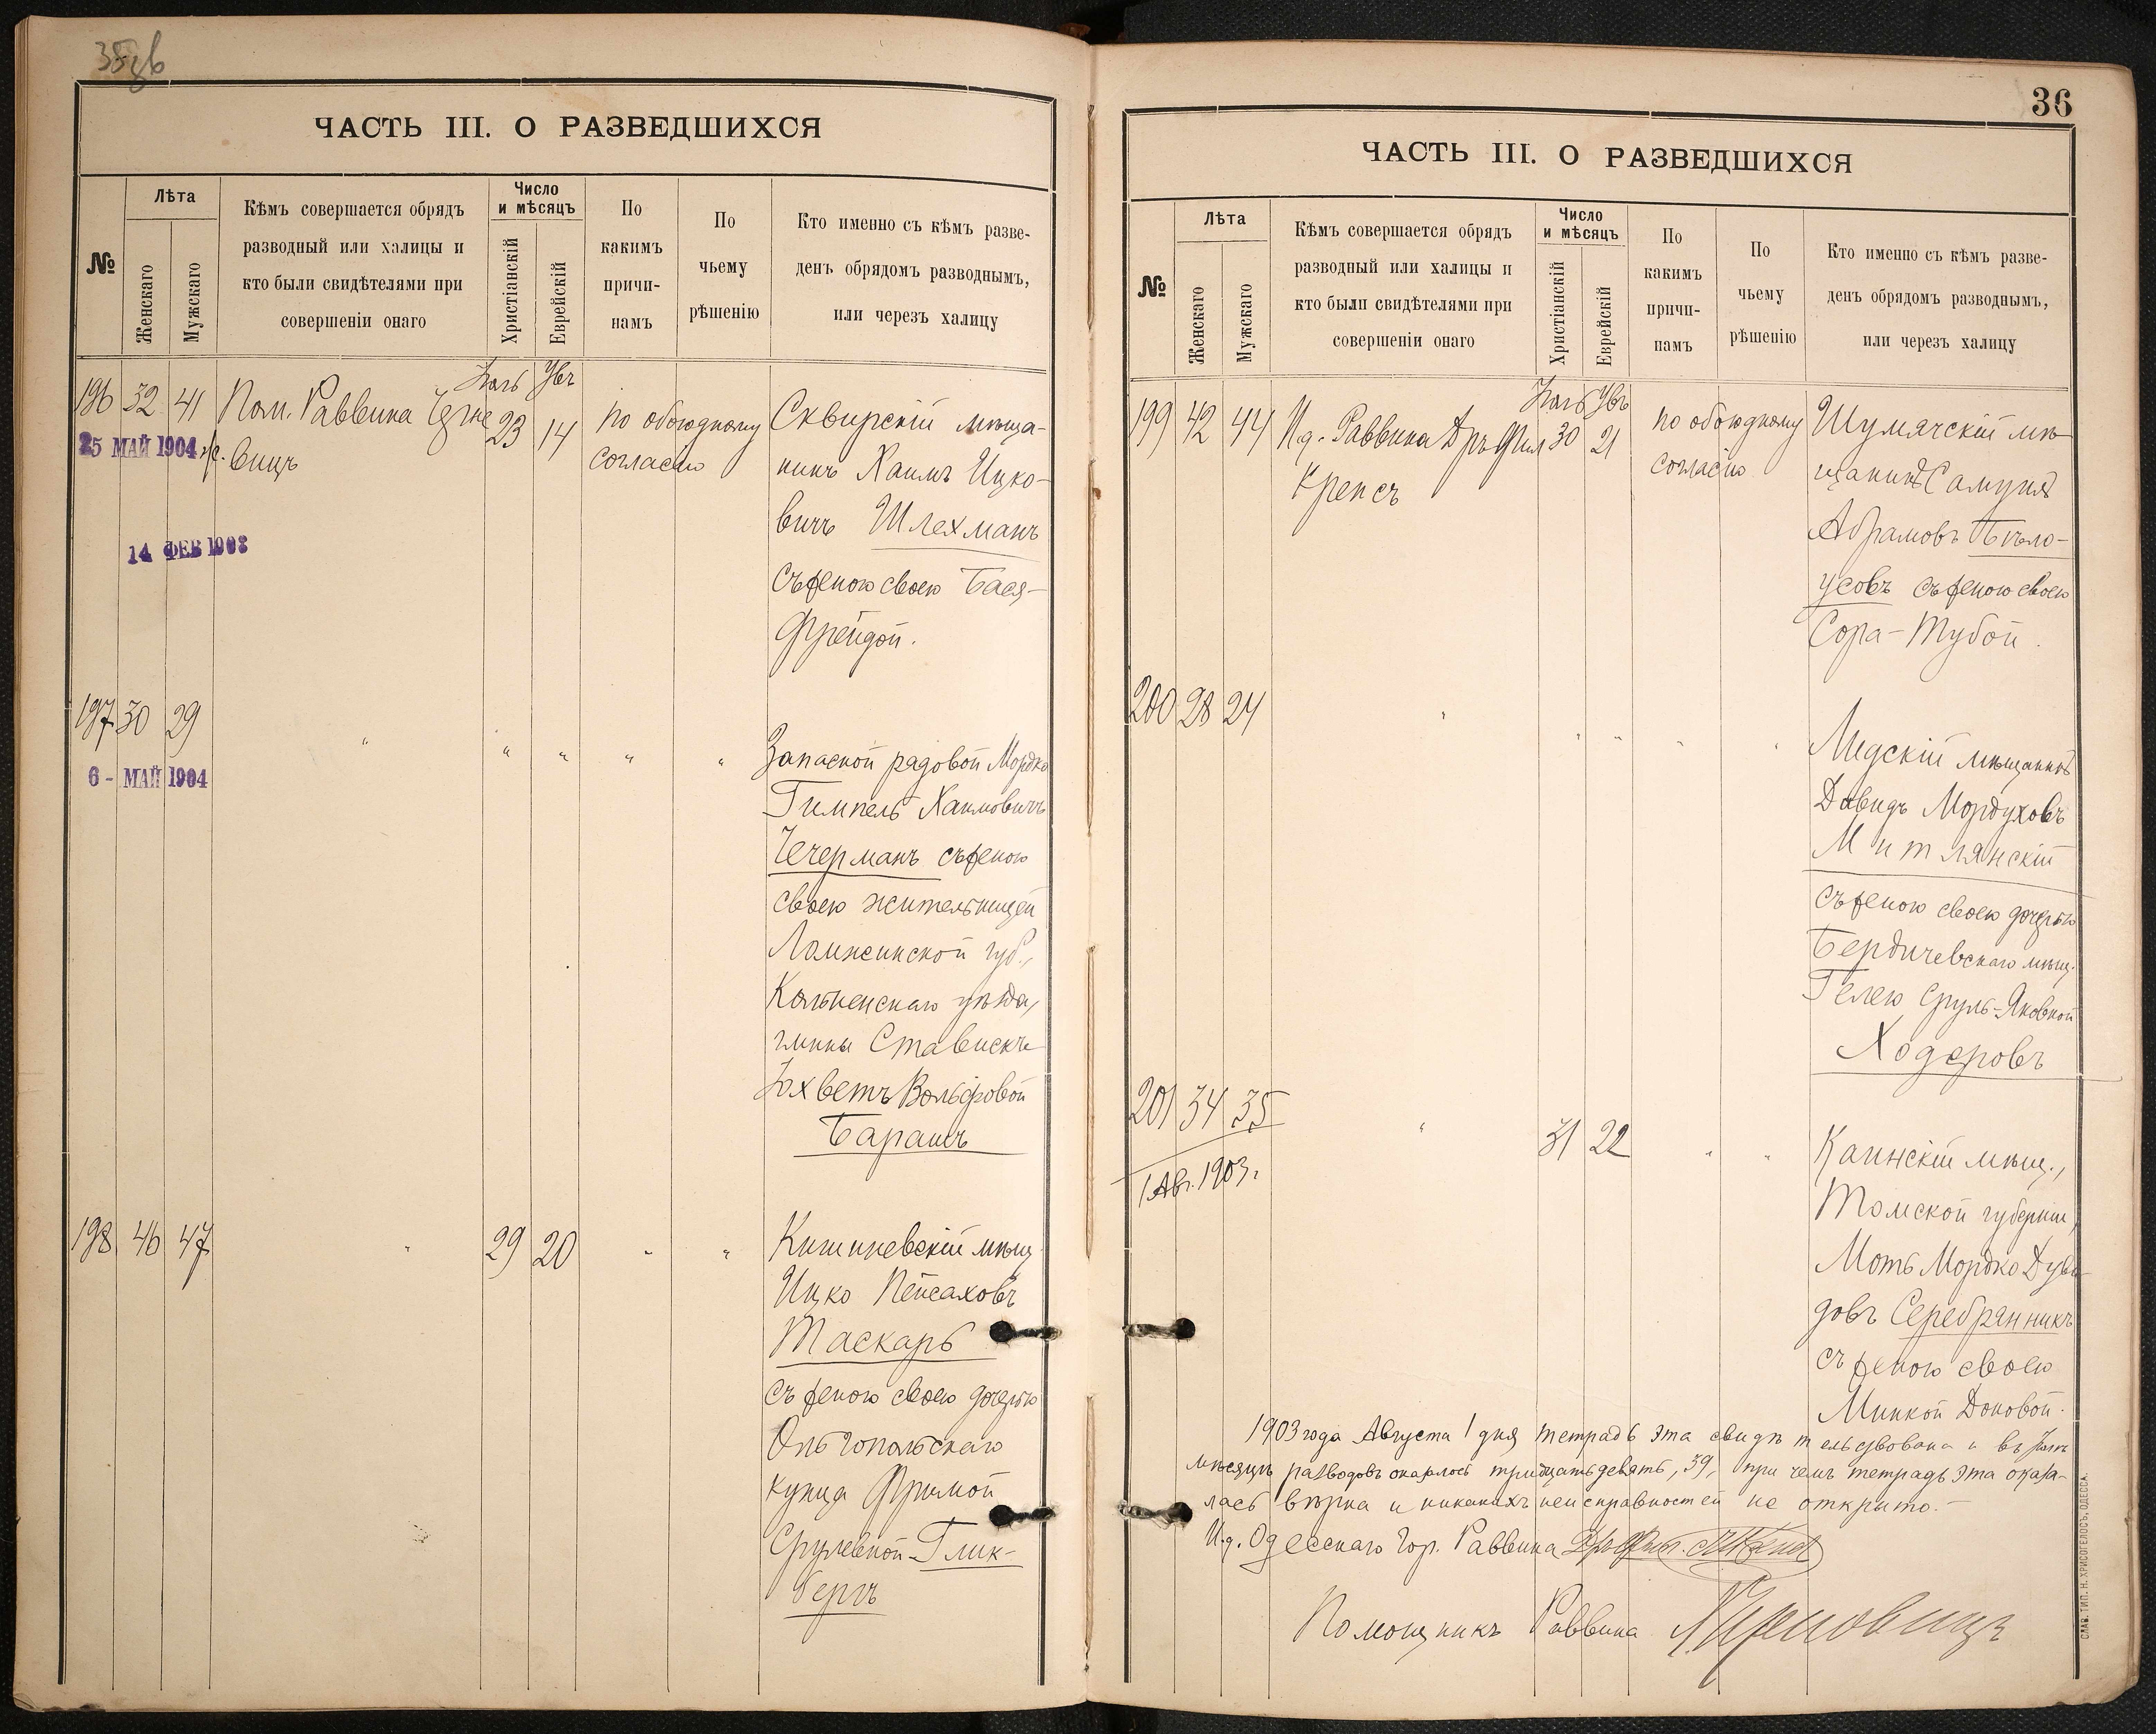 35об
ЧАСТЬ III. О РАЗВЕДШИХСЯ
№
Лѣта
Женскаго
Мужскаго
Кѣмъ совершается обрядъ
разводный или халицы и
кто были свидѣтелями при
совершеніи онаго
Число
и мѣсяцъ
Христіанскій
Еврейскій
По
какимъ
причи-
намъ
По
чьему
рѣшенію
Кто именно съ кѣмъ разве-
денъ обрядомъ разводнымъ,
или черезъ халицу
196 32 41 Пом. Раввина 23 14 По обоюдному Сквирскій мѣща-
25 МАЙ 1904
вицъ
согласію
нинъ Хаимъ Ицко-
вичъ Шлехманъ
14 ФЕВ 1908
съ женою своею Бася-
Фрейдой.
197 30 29 " " " " "
Запасной рядовой Мордко
6 - МАЙ 1904
Гимпель Хаимовичъ
Чечерманъ съ женою
своею жительницей
Ломжинской губ.,
Кольненскаго уѣзда,
гмины Стависки
Юхветъ Вольфовой
Барашъ
198 46 47 " 29 20 " "
Кишиневскій мѣщ.
Ицко Пейсаховъ
Таскарь
съ женою своею дочерью
Ольгопольскаго
купца Фримой
Срулевной-Глик-
бергъ
36
ЧАСТЬ III. О РАЗВЕДШИХСЯ
№
Лѣта
Женскаго
Мужскаго
Кѣмъ совершается обрядъ
разводный или халицы и
кто были свидѣтелями при
совершеніи онаго
Число
и мѣсяцъ
Христіанскій
Еврейскій
По
какимъ
причи-
намъ
По
чьему
рѣшенію
Кто именно съ кѣмъ разве-
денъ обрядомъ разводнымъ,
или черезъ халицу
199 42 44 И.д. Раввина Д-ръ Фил 30 21 По обоюдному Шумячскій мѣ-
Крепсъ
согласію
щанинъ Самуилъ
Абрамовъ Бѣло-
усовъ съ женою своею
Сора-Тубой.
200 28 24 " " " " "
Лидскій мѣщанинъ
Давидъ Мордуховъ
Митлянскій
съ женою своею дочерью
Бердичевскаго мѣщ.
Гелею Сруль-Яковной
Ходоровъ
201 34 35 " 31 22 " "
Каинскій мѣщ.,
1 Авг. 1903 г.
Томской губерніи,
Моть Мордко Дуви-
довъ Серебрянникъ
съ женою своею
Минкой Доновой.
1903 года Августа 1 дня тетрадь эта свидѣтельствована и въ Іюлѣ
мѣсяцѣ разводовъ оказалось тридцать девять, 39, при чемъ тетрадь эта оказа-
лась вѣрна и никакихъ неисправностей не открыто.-
И.д. Одесскаго Гор. Раввина
Помощникъ Раввина
СЛАВ. ТИП. Н. ХРИСОГЕЛОСЪ, ОДЕССА.